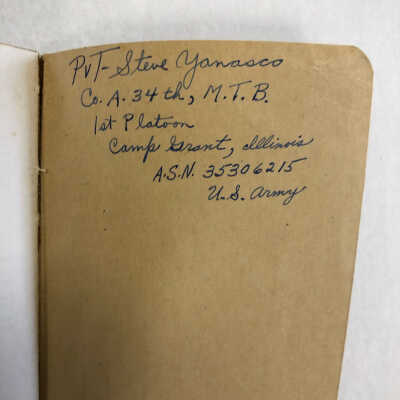 PvT- Steve Yanasco
Co. A. 34th, M.T.B.
1st Platoon
Camp Grant, Illinois
A.S.N. 35306215
U.S. Army